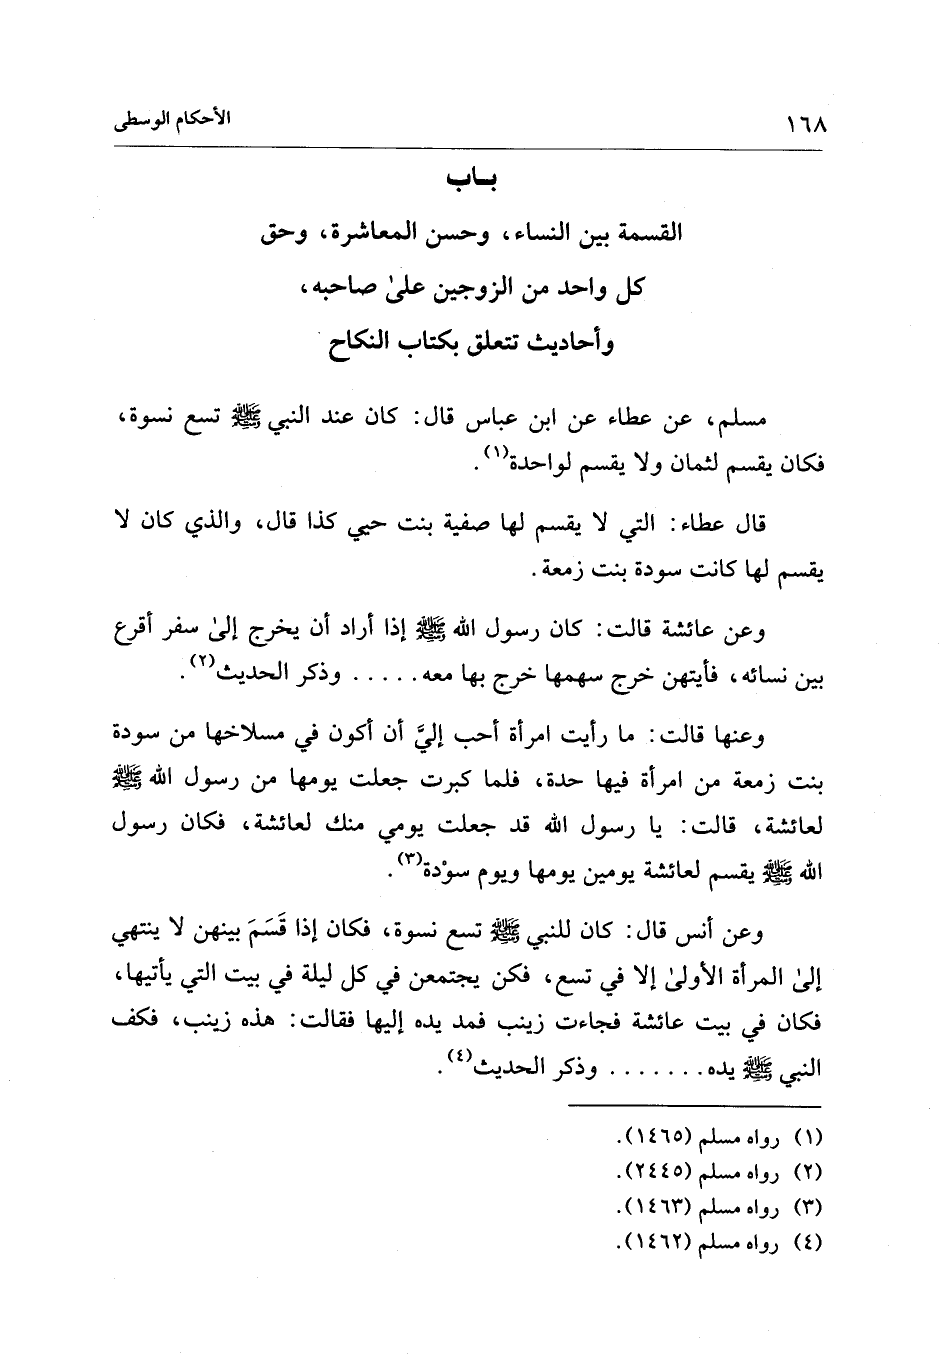 ١٦٨ الأحكام الوسطى
بـاب
القسمة بين النساء، وحسن المعاشرة، وحق
كل واحد من الزوجين علىٰ صاحبه،
وأحاديث تتعلق بكتاب النكاح
مسلم، عن عطاء عن ابن عباس قال: كان عند النبي ﷺ تسع نسوة،
فكان يقسم لثمان ولا يقسم لواحدة(١).
قال عطاء: التي لا يقسم لها صفية بنت حيي كذا قال، والذي كان لا
يقسم لها كانت سودة بنت زمعة.
وعن عائشة قالت: كان رسول الله ﷺ إذا أراد أن يخرج إلىٰ سفر أقرع
بين نسائه، فأيتهن خرج سهمها خرج بها معه..... وذكر الحديث(٢).
وعنها قالت: ما رأيت امرأة أحب إليَّ أن أكون في مسلاخها من سودة
بنت زمعة من امرأة فيها حدة، فلما كبرت جعلت يومها من رسول الله ﷺ
لعائشة، قالت: يا رسول الله قد جعلت يومي منك لعائشة، فكان رسول
الله ﷺ يقسم لعائشة يومين يومها ويوم سوْدة(٣).
وعن أنس قال: كان للنبي ﷺ تسع نسوة، فكان إذا قَسَمَ بينهن لا ينتهي
إلىٰ المرأة الأولىٰ إلا في تسع، فكن يجتمعن في كل ليلة في بيت التي يأتيها،
فكان في بيت عائشة فجاءت زينب فمد يده إليها فقالت: هذه زينب، فكف
النبي ﷺ يده....... وذكر الحديث(٤).
(١) رواه مسلم (١٤٦٥).
(٢) رواه مسلم (٢٤٤٥).
(٣) رواه مسلم (١٤٦٣).
(٤) رواه مسلم (١٤٦٢).